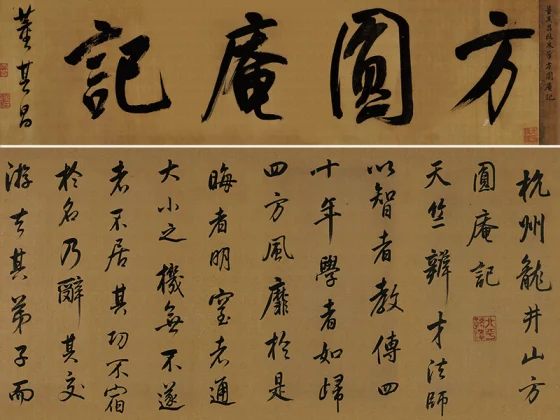 方圓庵記
董其昌
杭州龍井山方
圓庵記
天竺辯才法師
以智者教傳四
十年學者如歸
四方風靡於是
晦者明窒者通
大小之機無不遂
者不居其功不宿
於名乃辭其交
游去其弟子而